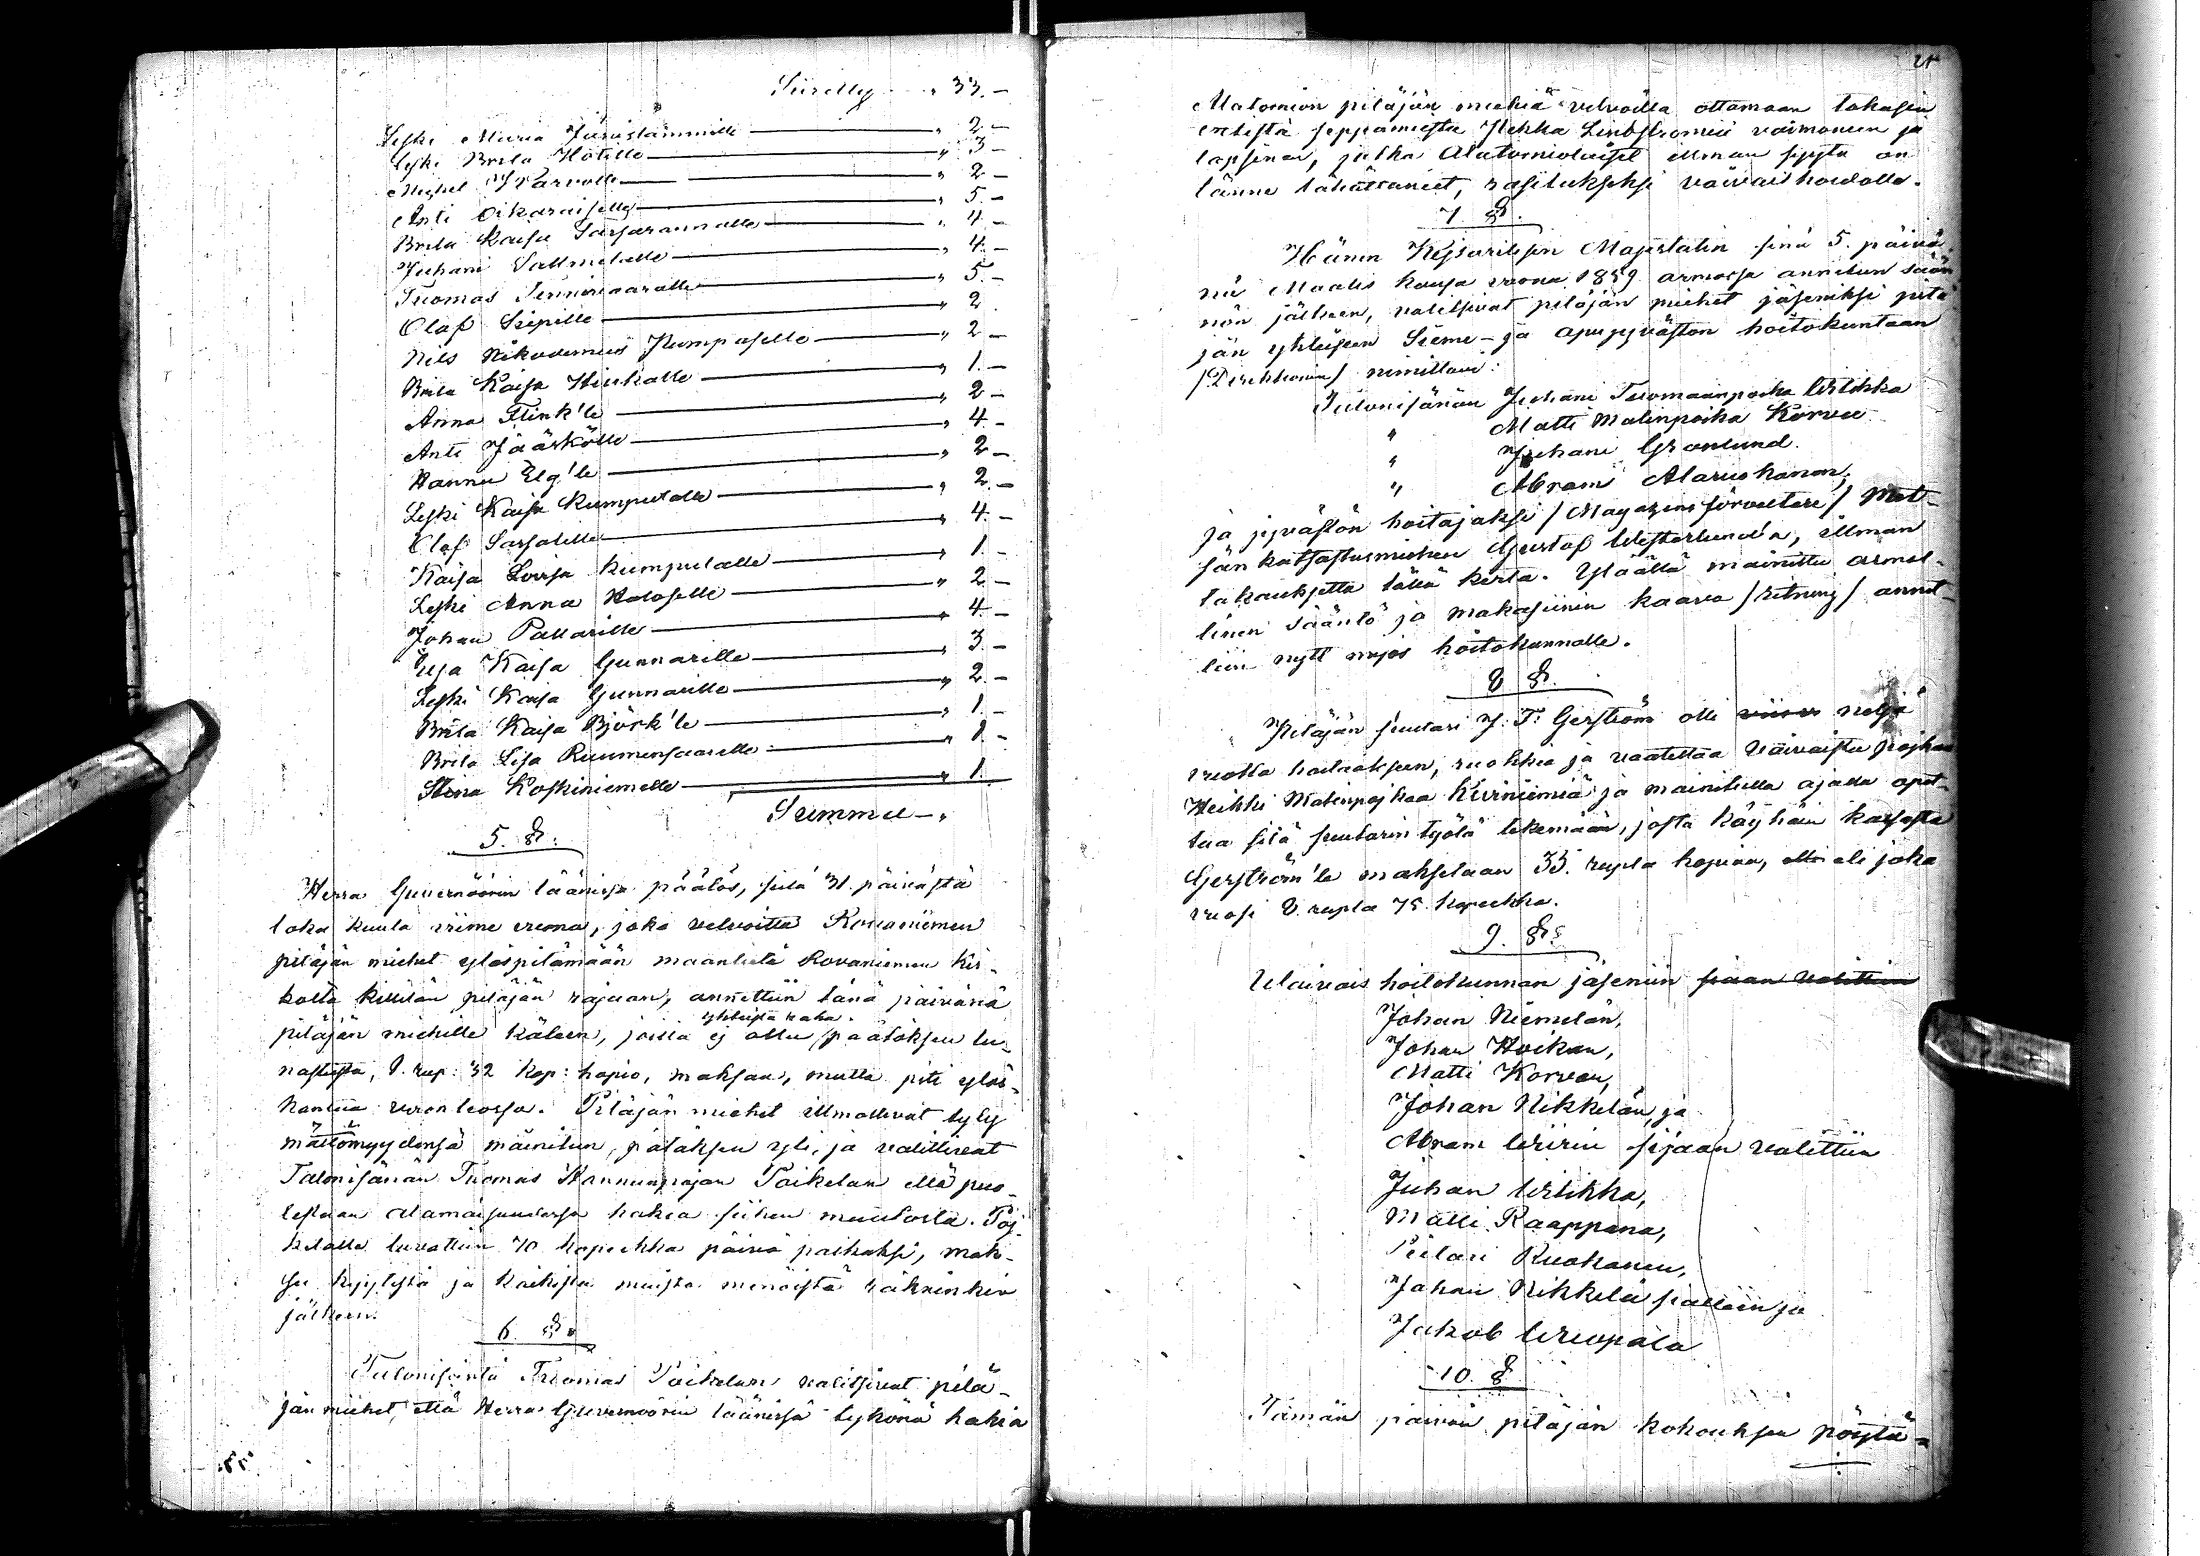 Siirelly " 33.-
Leski Maria Jänislammille " 2.-
Leski Brita Hötille " 3-
Michel Ylärvolle " 2-
Anti Oikaraiselle " 5.-
Brita Kaisa Saarannalle " 4.-
Juhani Sallmelalle " 4.-
Tuomas Tennivaaralle " 5.-
Olaf Seipille " 2
Nils Nikodemus Kumpaselle " 2-
Brita Kaisa Hiukalle " 1.-
Anna Flink'le " 2-
Anti Jääskölle " 4.-
Hannu Elg'le " 2-
Leski Kaisa Kumputalle " 2.-
Olaf Sarjalille " 4.-
Kaisa Lovisa Kumpulalle " 1.-
Leski Anna Haloselle " 2-
Johan Pallarille " 4-
Elija Kaisa Gunnarille " 3.-
Leski Kaisa Gunnarille " 2.-
Brita Kaisa Björk'le " 1.-
Brita Lisa Ruumensaarelle " 1-
Stina Koskiniemelle " 1.
Summa - "
5. §.
Herra Guvernöörin läänissa päätös, siitä 31. päivästä
loka kuuta viime vuonna, joka velvoitta Rovaniemen
pitäjän miehet ylöspitämään maantietä Rovaniemen kir-
kolta Kittilän pitäjän rajaan, annettiin tänä päivänä
yhteista raha
pitäjän miehille käteen, joilla ej ollu päätöksen lu-
nastusta, 8. rup: 32 kop: hopio, maksaa, mutta piti ylös
kantua veron teossa. Pitäjän miehet illmottivat tyty
mättömyydensä mainitun päätöksen yli, ja valittivat
Talonisänän Tuomas Hannunpojan Poikelan että puo-
lestaan alamaisuudessa hakia siihen muutosta. Poj
kelalle luvattiin 70 kopeekka päivä palkaksi, mak-
su kyytistä ja kaikista muista menoista räkninkin
jälkeen.
6. §.
Talonisäntä Tuomas Poikelan valitsivat pitä-
jän miehet, että Herra Guvernöörin läänissä tykönä hakia
Alatornion pitäjän miehiä velvoilla ottamaan takasin
entistä seppämiesta Pekka Lindstromia vaimoneen ja
lapsinen, jotka Alatorniolaiset illman syytä on
tänne lähättäneet, rasitukseksi vaivaishoidolle.
7. §.
Hänen Kejsarillisen Majestätin sinä 5. päivä-
nä Maalis kuusa vuona 1859 armossa annitun sään
nön jälkeen, valitsivat pitäjän miehet jäseniksi pitä
jän yhteiseen Sieme- ja apujyvästön hoitokuntaan
/Direkktionin/ nimittäin:
Talonisänän Juhani Tuomaanpoika Ulikka
" Matti Matinpoika Korvu
" Juhani Granlund
" Abram Alaruokanan,
ja jyvästön hoitajaksi /Magazins förvaltare/ Met-
sän katsastusmiehen Gustaf Westerlund'n, illman
takauksetta tällä kerta. Ylläällä mainittu armol-
linen sääntö ja makasiinin kaava /ritning/ annet-
tiin nytt myös hoitokunnalle.
8 §.
Pitäjän suutari J. F. Gerström olli viisi neljä
vuotta hoitaakseen, ruokkia ja vaatettaa vaivaista pojkaa
Heikki Matinpojkaa Kurniemiä ja mainitulla ajalla opet-
taa sitä suutarin työtä tekemään, josta köyhäin kassasta
Gerström'le maksetaan 35. rupla hopiaa, olli eli joka
vuosi 8. rupla 75 kopeekka.
9. §.
Waivais hoitokunnan jäsenin siaan valittiin
Johan Niemelän,
Johan Hoikan,
Matti Korvan,
Johan Nikkelän, ja
Abram Wiirin sijaan valittiin
Juhan Ulikka,
Matti Raappana,
Pietari Ruokanen,
Johan Nikkelä taallein ja
Jakob Wuopala
10. §
Tämän päivän pitäjän kokouksen pöytä-